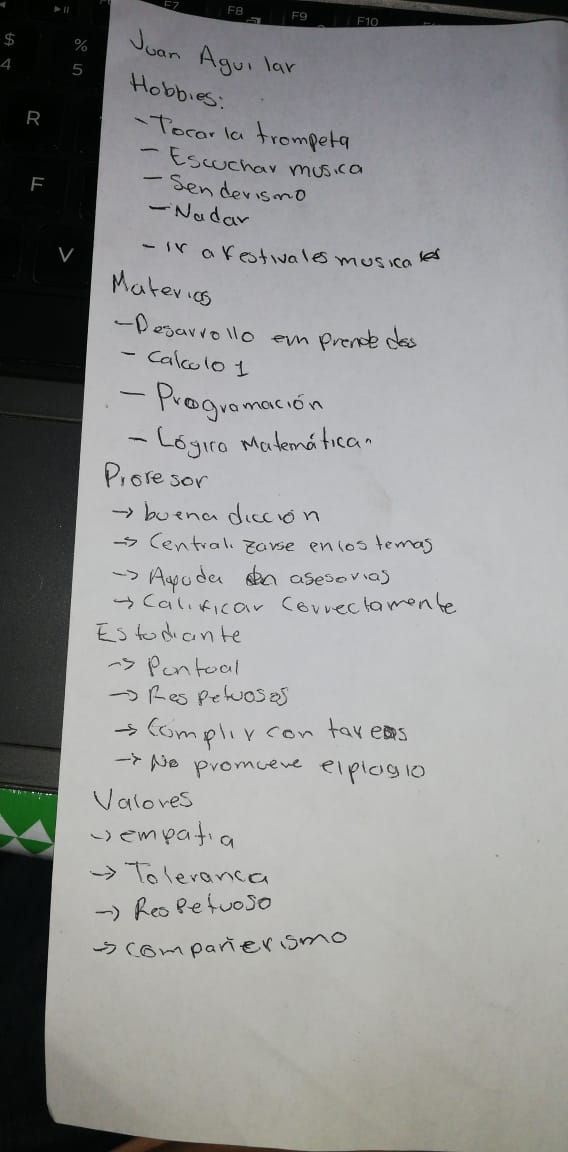 F7
F8
F9
F10
$
4
%
5
R
F
V
Juan Aguilar
Hobbies:
- Tocar la trompeta
- Escuchar musica
- Senderismo
- Nadar
- Ir a festivales musicales
Materias
- Desarrollo
- Calculo 1
- Programación
- Lógica Matemática
Profesor
→ buena dicción
→ Centralizarse en los temas
→ Ayuda en asesorias
→ Calificar Correctamente
Estudiante
→ Puntual
→ Respetuosos
→ Cumplir con tareas
→ No promueve el plagio
Valores
→ empatia
→ Toleranca
→ Respetuoso
→ compañerismo